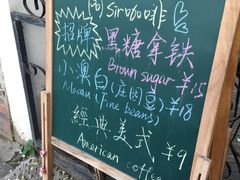 Sir咖啡
招牌
黑糖拿铁
Brown sugar ¥15
澳白(庄园豆)
Macau (Fine beans) ¥18
经典美式
American coffee ¥9